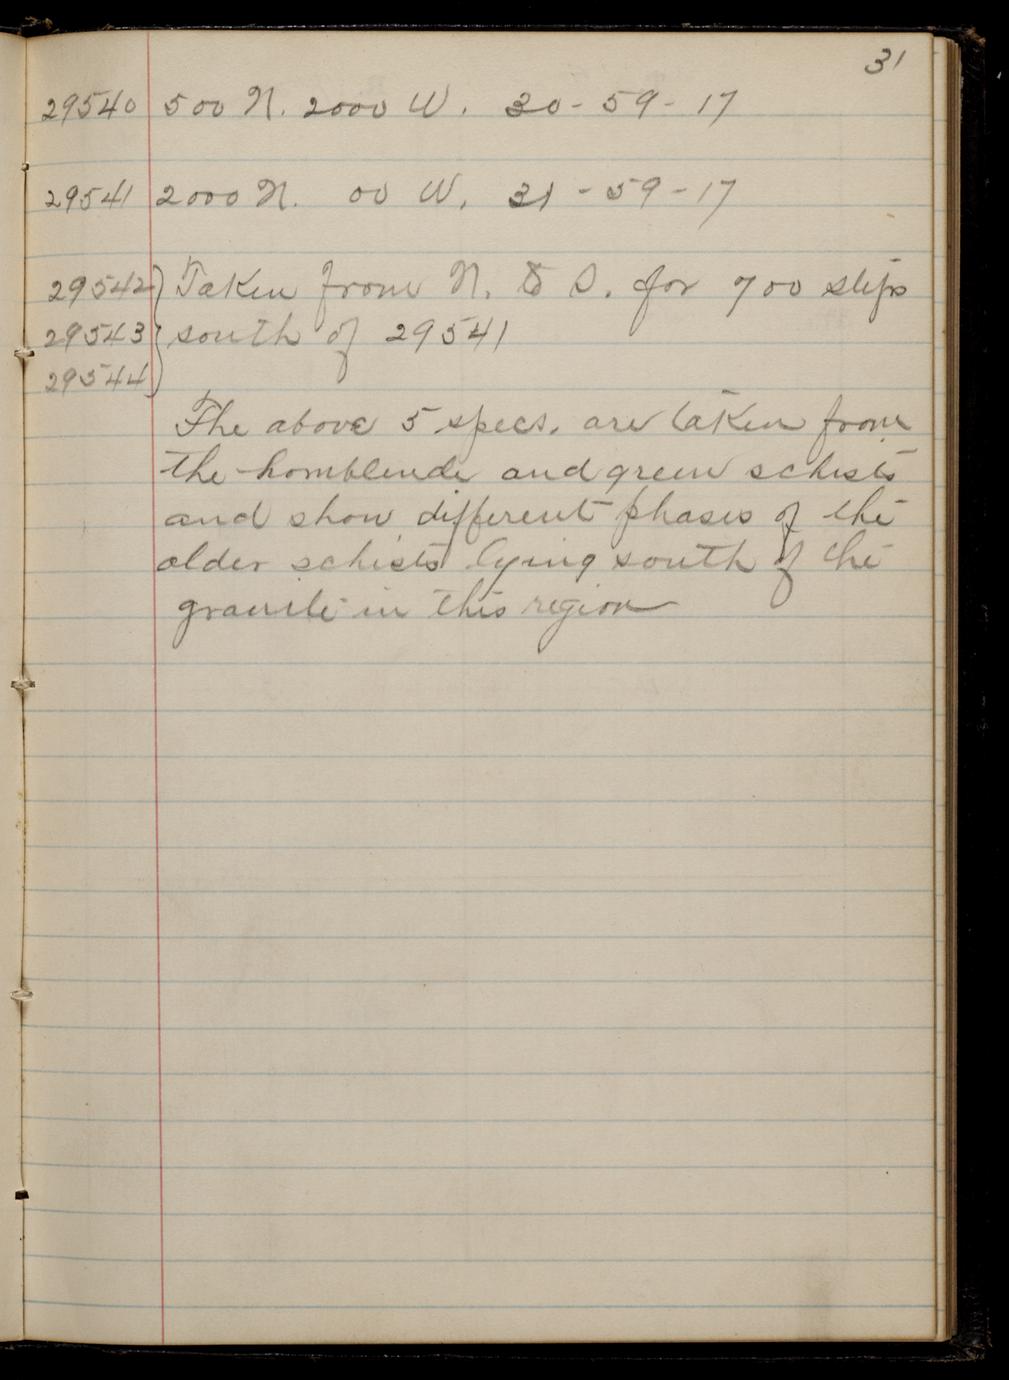 31
29540 500 N. 2000 W. 30-59-17
29541 2000 N. 00 W. 31-59-17
29542 Taken from N. to S. for 700 steps
29543 south of 29541
29544
The above 5 specs. are taken from
the hornblende and green schists
and show different phases of the
older schists lying south of the
granite in this region